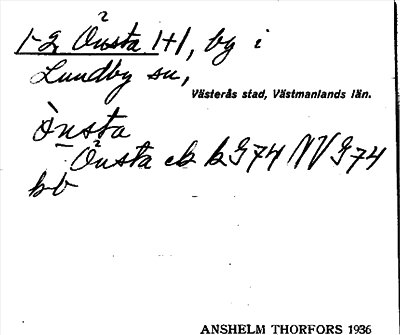 1-2 Önsta 1+1, by i
Lundby sn,
Västerås stad, Västmanlands län.
Ònsta
Önsta ek bG74 NVG74
bb
ANSHELM THORFORS 1936